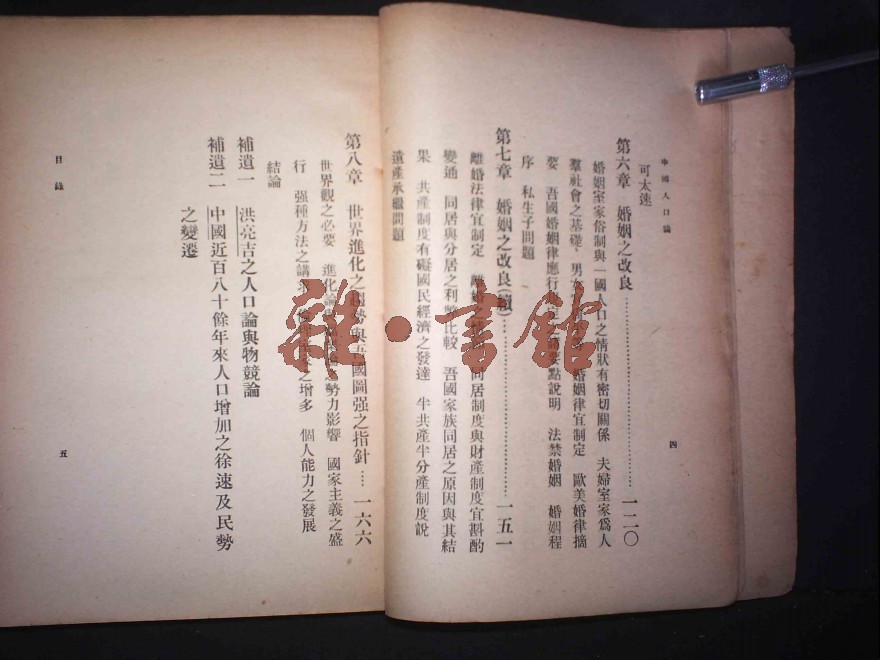 中國人口論
可太速
第六章 婚姻之改良……一二〇
婚姻室家俗制與一國人口之情狀有密切關係 夫婦室家爲人
羣社會之基礎 男女 婚姻律宜制定 歐美婚律摘
要 吾國婚姻律應行 要點說明 法禁婚姻 婚姻程
序 私生子問題
第七章 婚姻之改良(續)……一五一
離婚法律宜制定 離婚 同居制度與財產制度宜斟酌
變通 同居與分居之利弊比較 吾國家族同居之原因與其結
果 共產制度有礙國民經濟之發達 半共產半分產制度說
遺產承繼問題
四
第八章 世界進化之趨勢與吾國圖强之指針……一六六
世界觀之必要 進化論 勢力影響 國家主義之盛
行 强種方法之講求 之增多 個人能力之發展
結論
補遺一 洪亮吉之人口論與物競論
補遺二 中國近百八十餘年來人口增加之徐速及民勢
之變遷
目錄
五
雜·書館